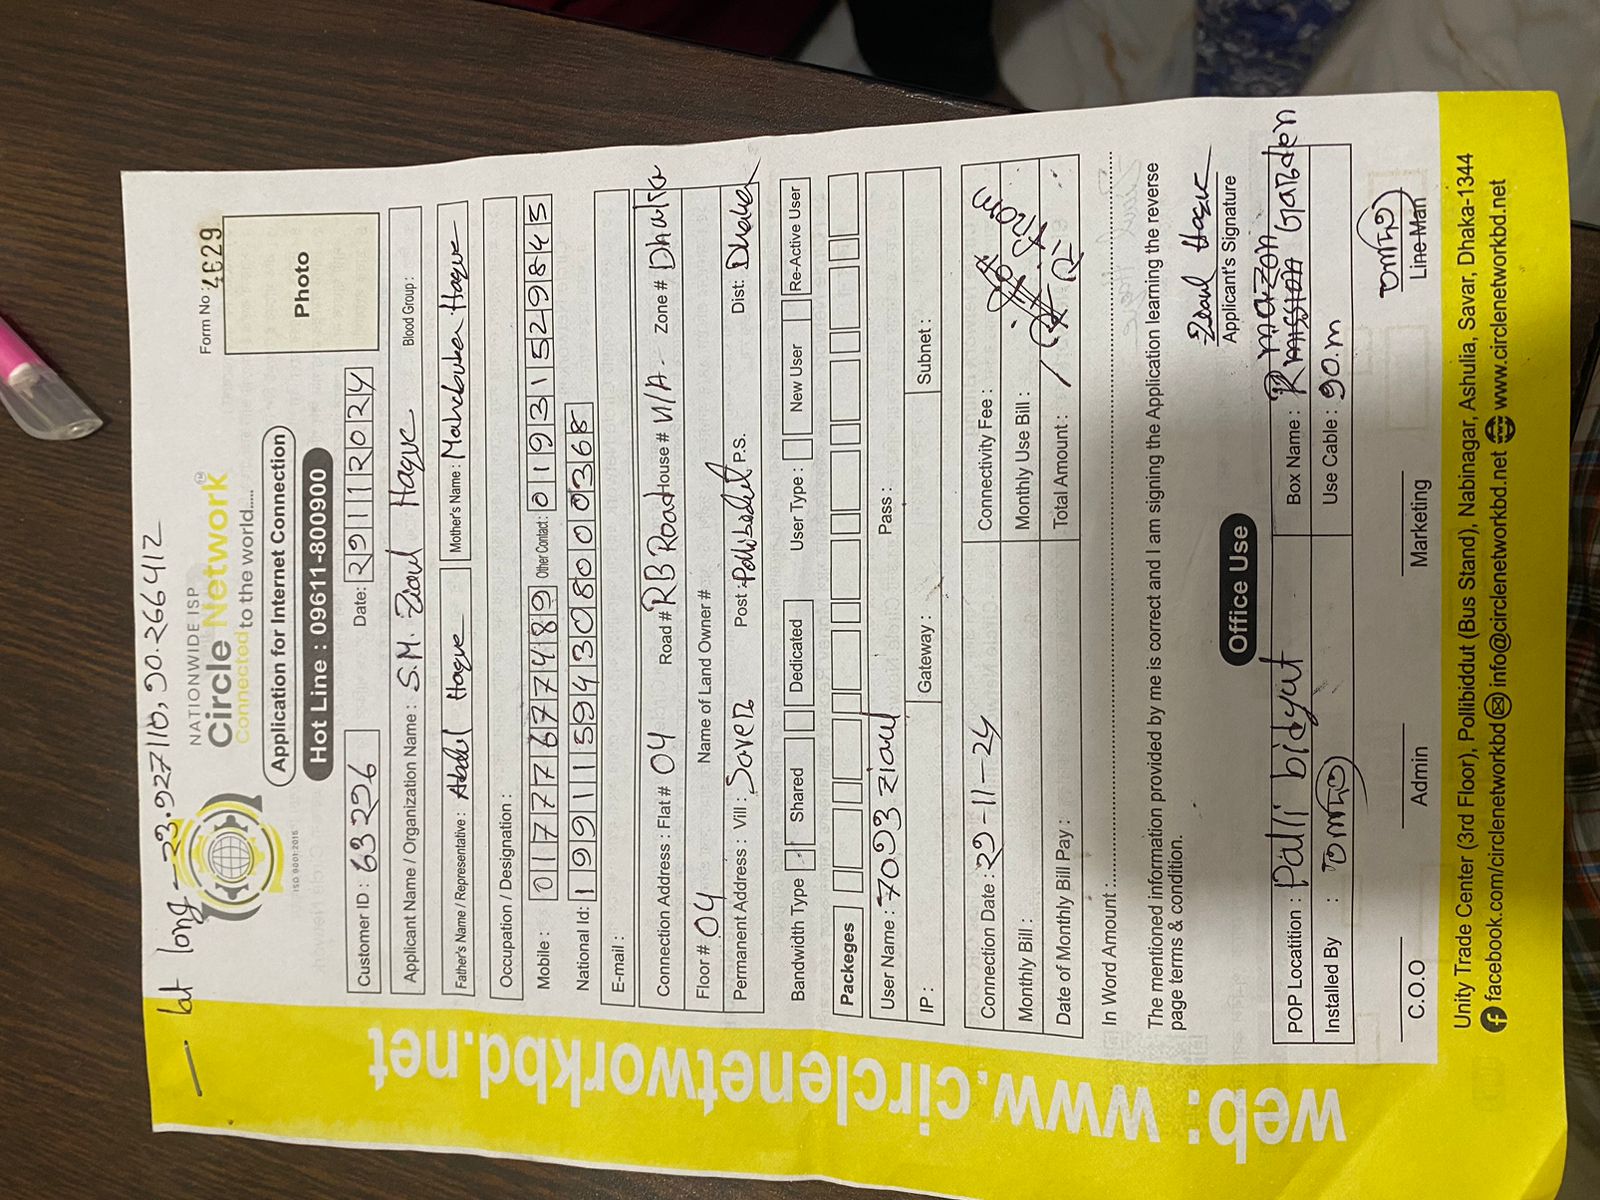 lat long - 23.927116, 90.266412
NATIONWIDE ISP
Circle Network
Connected to the world.....
ISO 9001:2015
Form No : 4629
Application for Internet Connection
Hot Line : 09611-800900
Photo
Customer ID : 63296 Date: 29112024
Applicant Name / Organization Name : S.M. Ziaul Haque Blood Group :
Father's Name / Representative : Abdul Haque Mother's Name : Mahabuba Haque
Occupation / Designation :
Mobile : 01777677489 Other Contact: 01931529845
National Id: 19911594308000368
E-mail :
Connection Address : Flat # 04 Road # RB Road House # N/A - Zone # Dhaka
Floor # 04 Name of Land Owner #
Permanent Address : Vill : Saver Post : Pollibedut P.S. Dist: Dhaka
Bandwidth Type Shared Dedicated User Type : New User Re-Active User
Packeges
User Name : 7093 ziaul Pass :
IP : Gateway : Subnet :
Connection Date : 29-11-24 Connectivity Fee :
Monthly Bill : Monthly Use Bill :
Date of Monthly Bill Pay : Total Amount :
In Word Amount :
The mentioned information provided by me is correct and I am signing the Application learning the reverse
page terms & condition.
Ziaul Haque
Applicant's Signature
Office Use
POP Locatition : Palli bidyut Box Name : Garden
Installed By : Use Cable : 90.m
C.O.O Admin Marketing Line Man
Unity Trade Center (3rd Floor), Pollibiddut (Bus Stand), Nabinagar, Ashulia, Savar, Dhaka-1344
facebook.com/circlenetworkbd info@circlenetworkbd.net www.circlenetworkbd.net
web: www.circlenetworkbd.net